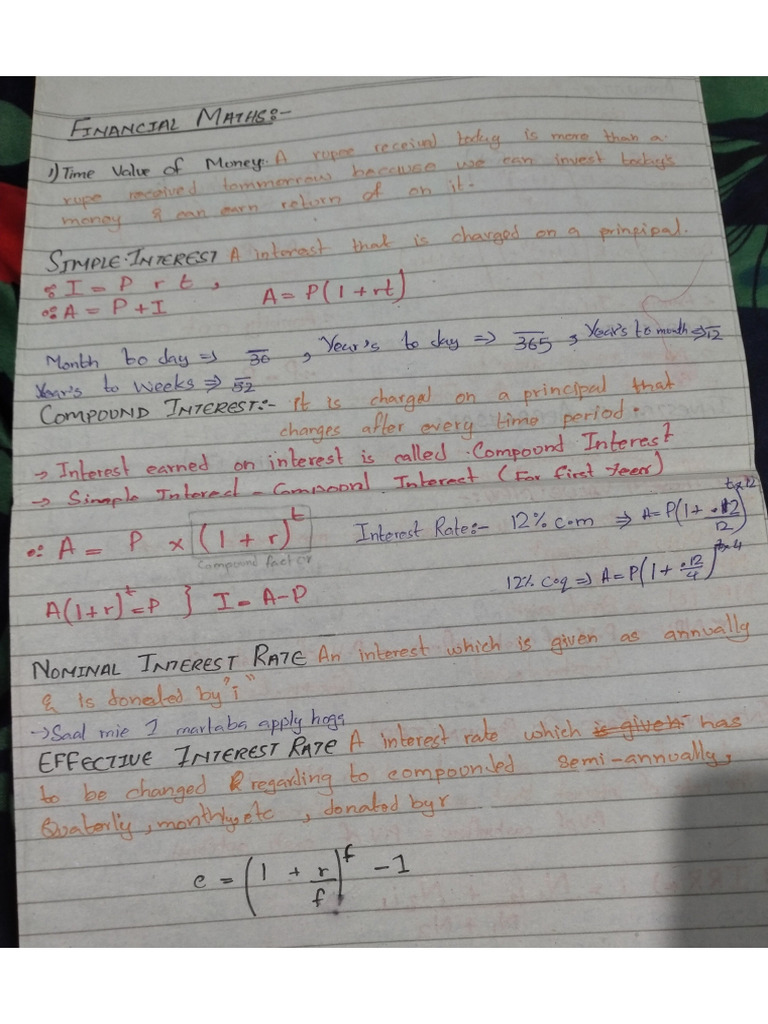 FINANCIAL MATHS:-
1) Time Value of Money: A rupee received today is more than a
rupe received tommorrow because we can invest today's
money & can earn return of on it.
SIMPLE INTEREST A interest that is charged on a principal.
∴ I = P r t , A = P(1 + rt)
∴ A = P + I
Month to day => /30 , Year's to day => /365 , Year's to month => /12
Year's to weeks => /52
COMPOUND INTEREST:- it is charged on a principal that
changes after every time period.
→ Interest earned on interest is called Compound Interest
→ Simple Interest = Compound Interest (For first Year)
∴ A = P × (1 + r)^t Interest Rate:- 12% com => A = P(1 + .12/12)^t×12
Compound factor
12% coq => A = P(1 + .12/4)^t×4
A(1+r)^t = P } I = A - P
NOMINAL INTEREST RATE An interest which is given as annually
& Is donated by "i"
→ Saal mie 1 martaba apply hoga
EFFECTIVE INTEREST RATE A interest rate which is given has
to be changed regarding to compounded semi-annually,
Quaterly, monthly, etc , donated by r
e = (1 + r/f)^f - 1